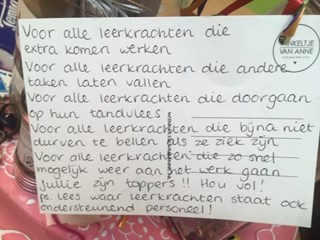 Voor alle leerkrachten die
extra komen werken
Voor alle leerkrachten die andere
taken laten vallen
Voor alle leerkrachten die doorgaan
op hun tandvlees
Voor alle leerkrachten die bijna niet
durven te bellen als ze ziek zijn
Voor alle leerkrachten die zo snel
mogelijk weer aan het werk gaan
Jullie zijn toppers!! Hou vol!
ps. Lees waar leerkrachten staat ook
ondersteunend personeel!
WINKELTJE
VAN ANNE